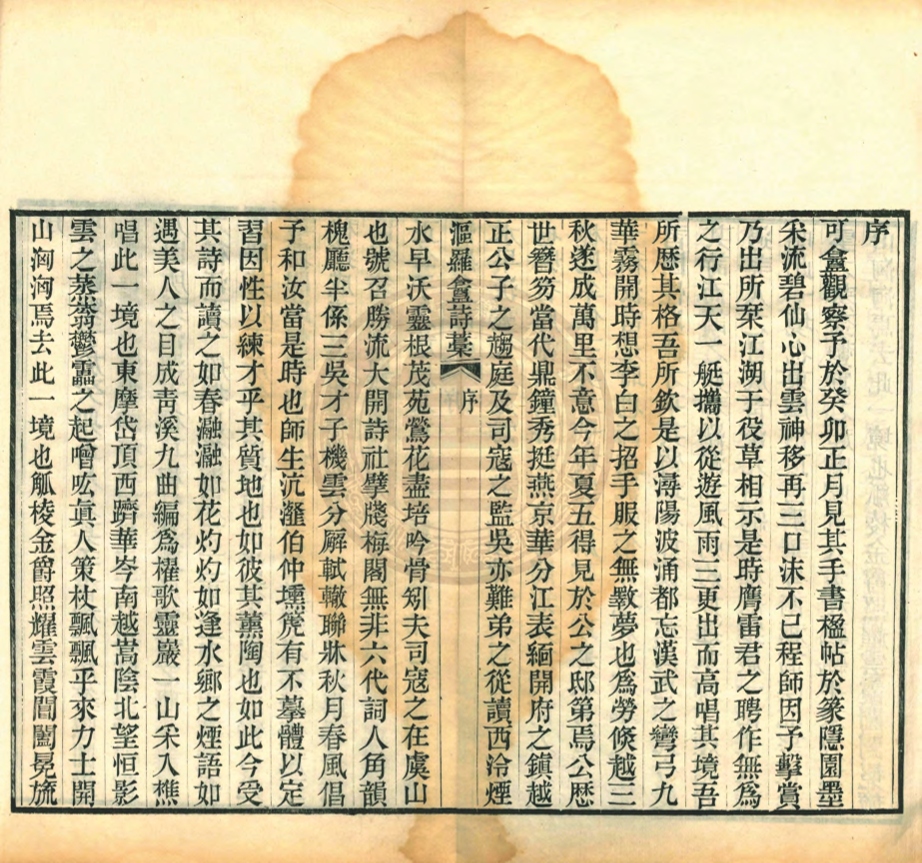 序
可盦觀察予於癸卯正月見其手書楹帖於篆隱園墨
采流碧仙心出雲神移再三口沫不已程師因予擊賞
乃出所栞江湖于役草相示是時膺雷君之聘作無爲
之行江天一艇攜以從遊風雨三更出而高唱其境吾
所歷其格吾所欽是以潯陽波涌都忘漢武之彎弓九
華霧開時想李白之招手服之無斁夢也爲勞倏越三
秋遂成萬里不意今年夏五得見於公之邸第焉公歷
世簪笏當代鼎鐘秀挺燕京華分江表緬開府之鎭越
正公子之趨庭及司寇之監吳亦難弟之從讀西泠煙
漚羅盦詩藁 序
水早沃靈根茂苑鶯花盡培吟骨矧夫司寇之在虞山
也號召勝流大開詩社擘牋梅閣無非六代詞人角韻
槐廳半係三吳才子機雲分廨軾轍聯牀秋月春風倡
子和汝當是時也師生沆瀣伯仲壎箎有不摹體以定
習因性以練才乎其質地也如彼其薰陶也如此今受
其詩而讀之如春瀜瀜如花灼灼如逢水鄉之煙語如
遇美人之目成靑溪九曲編爲櫂歌靈巖一山采入樵
唱此一境也東摩岱頂西躋華岑南越嵩陰北望恒影
雲之蒸蓊鬱靁之起噌吰眞人策杖飄飄乎來力士開
山洶洶焉去此一境也觚棱金爵照耀雲霞閶闔冕旒